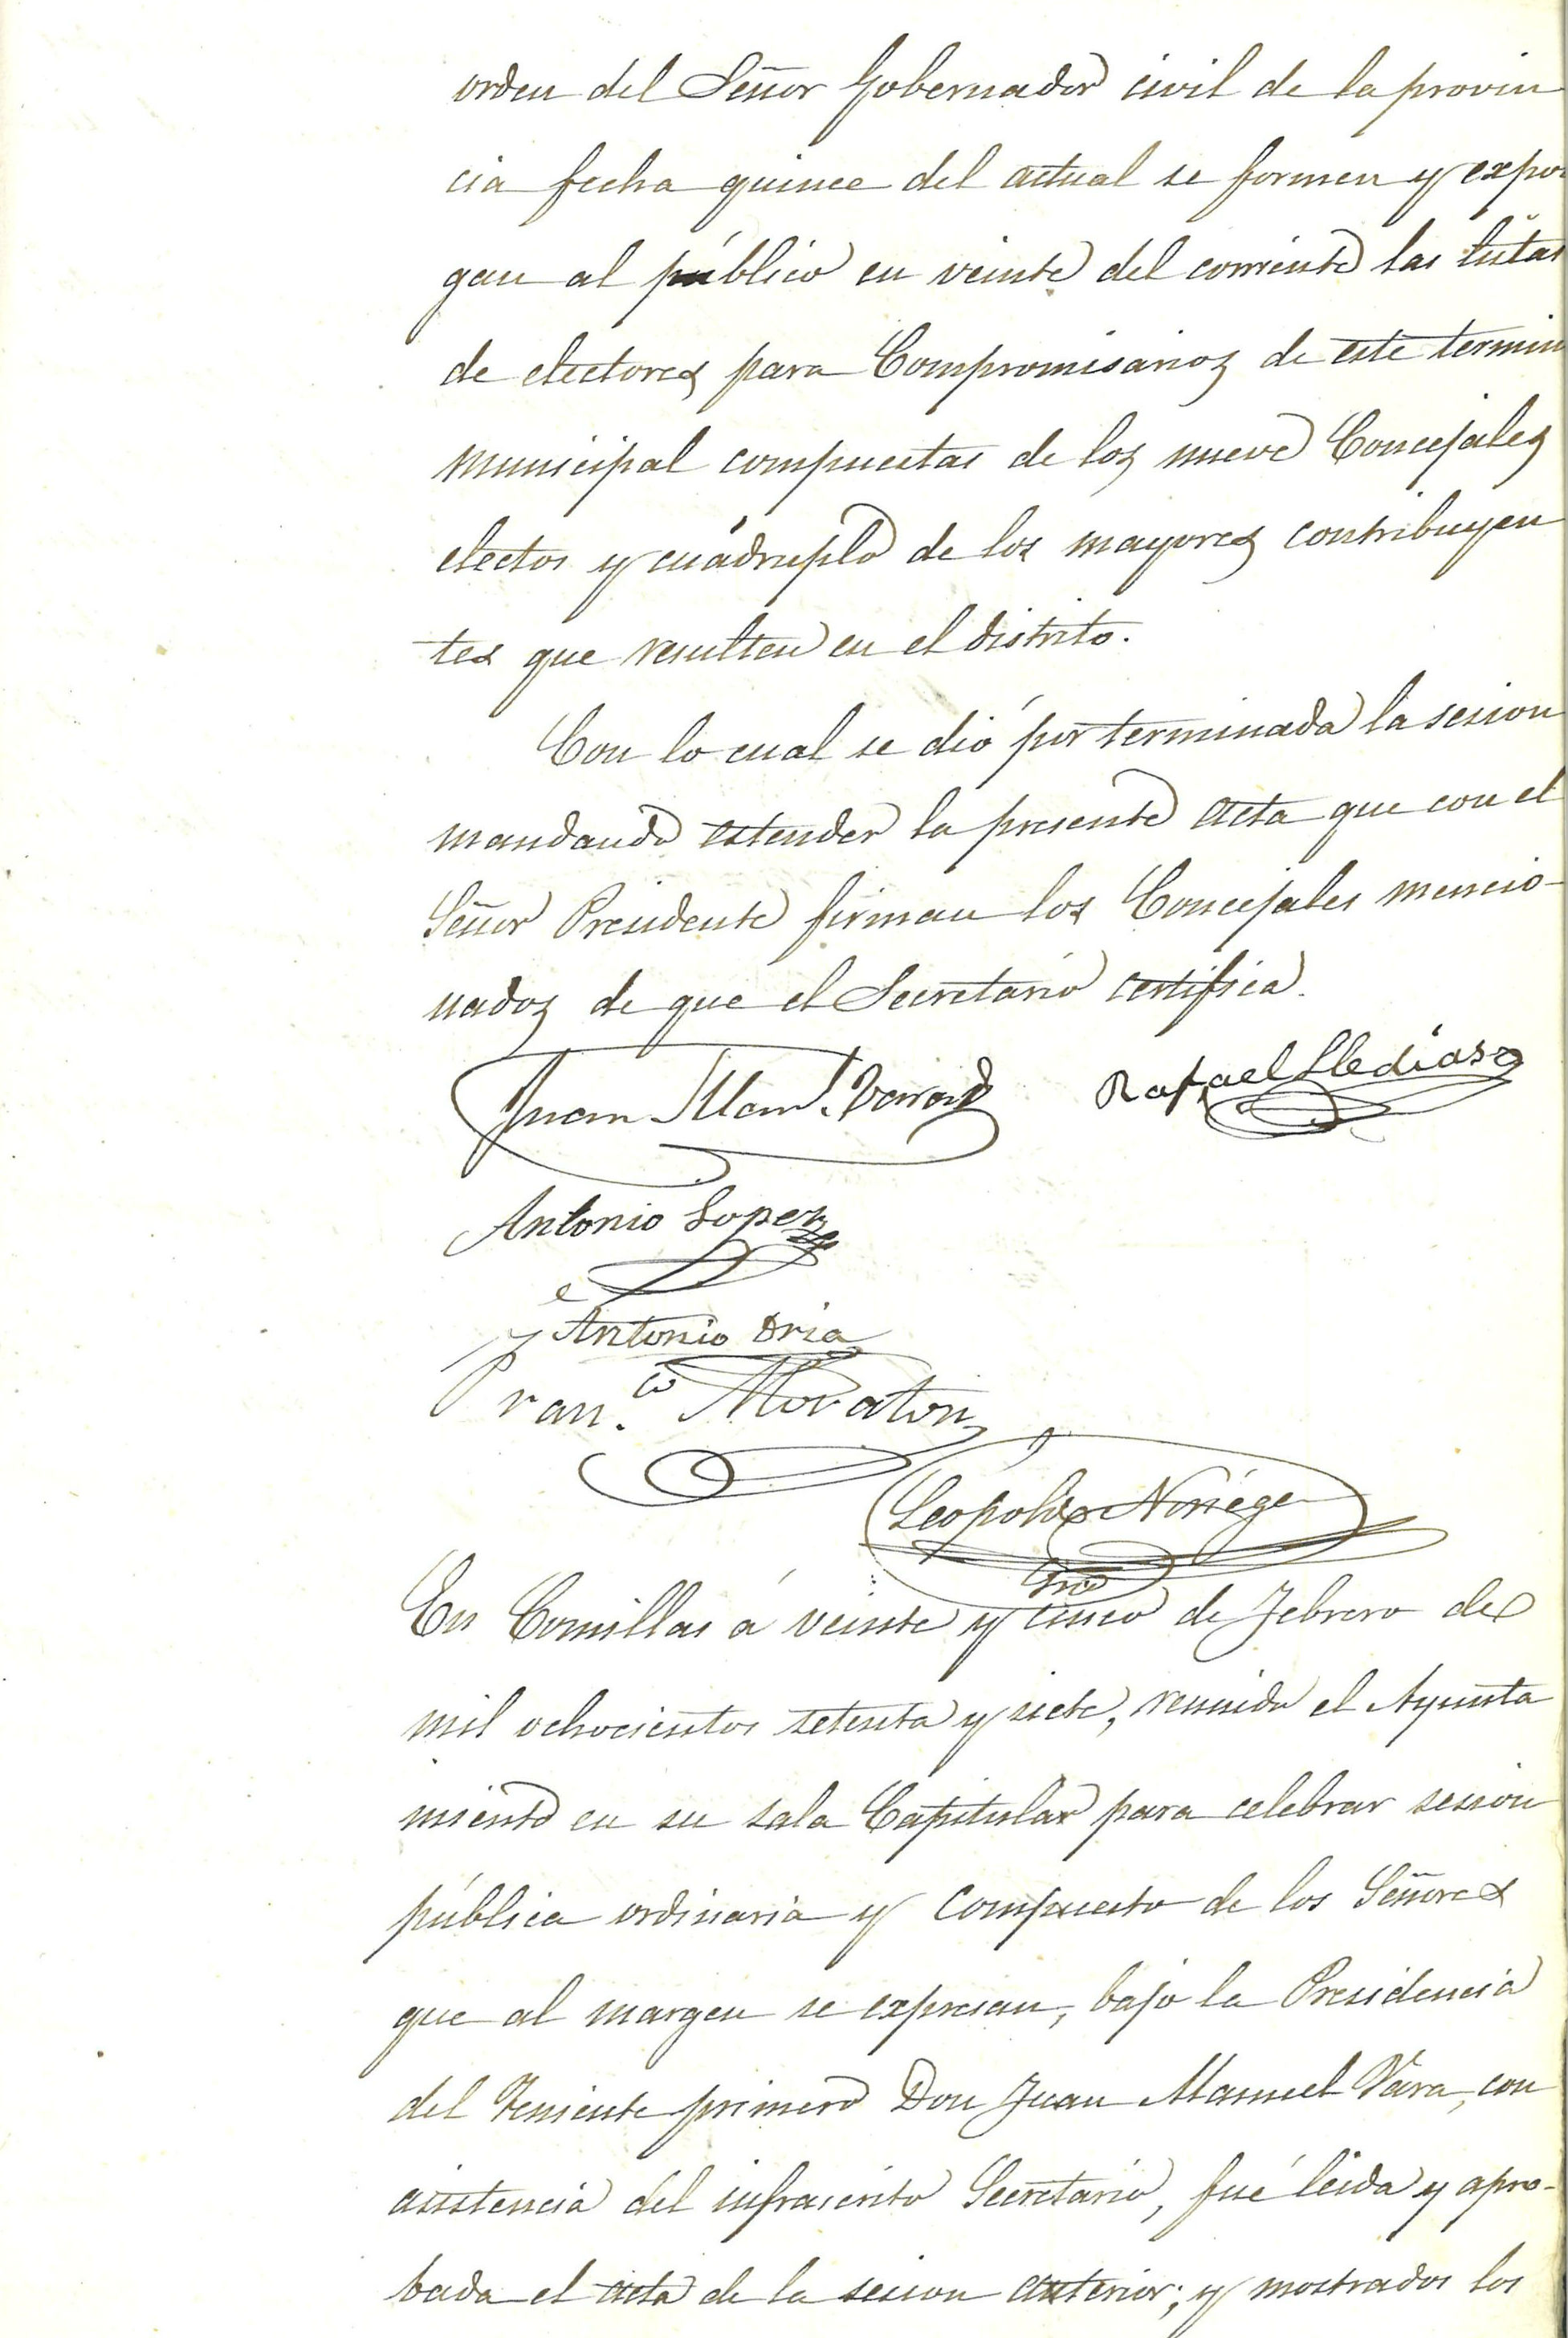 orden del Señor Gobernador civil de la provin
cia fecha quince del actual se formen y expon
gan al público en veinte del corriente las listas
de electores para Compromisarios de este termino
municipal compuestas de los nueve Concejales
electos y cuádruplo de los mayores contribuyen
tes que resulten en el distrito.
Con lo cual se dió por terminada la sesion
mandando estender la presente acta que con el
Señor Presidente firman los Concejales mencio-
nados de que el Secretario certifica.
Juan Man.l
Rafael
Antonio Lopez
Antonio Oria
Fran.co Moraton
Leopoldo Noriega
Srio
En Comillas á veinte y cinco de Febrero de
mil ochocientos setenta y siete, reunido el Ayunta
miento en su sala Capitular para celebrar sesion
pública ordinaria y compuesto de los Señores
que al margen se expresan, bajo la Presidencia
del Teniente primero Don Juan Manuel Vara, con
asistencia del infrascrito Secretario, fué leida y apro-
bada el acta de la sesion anterior; y mostrados los